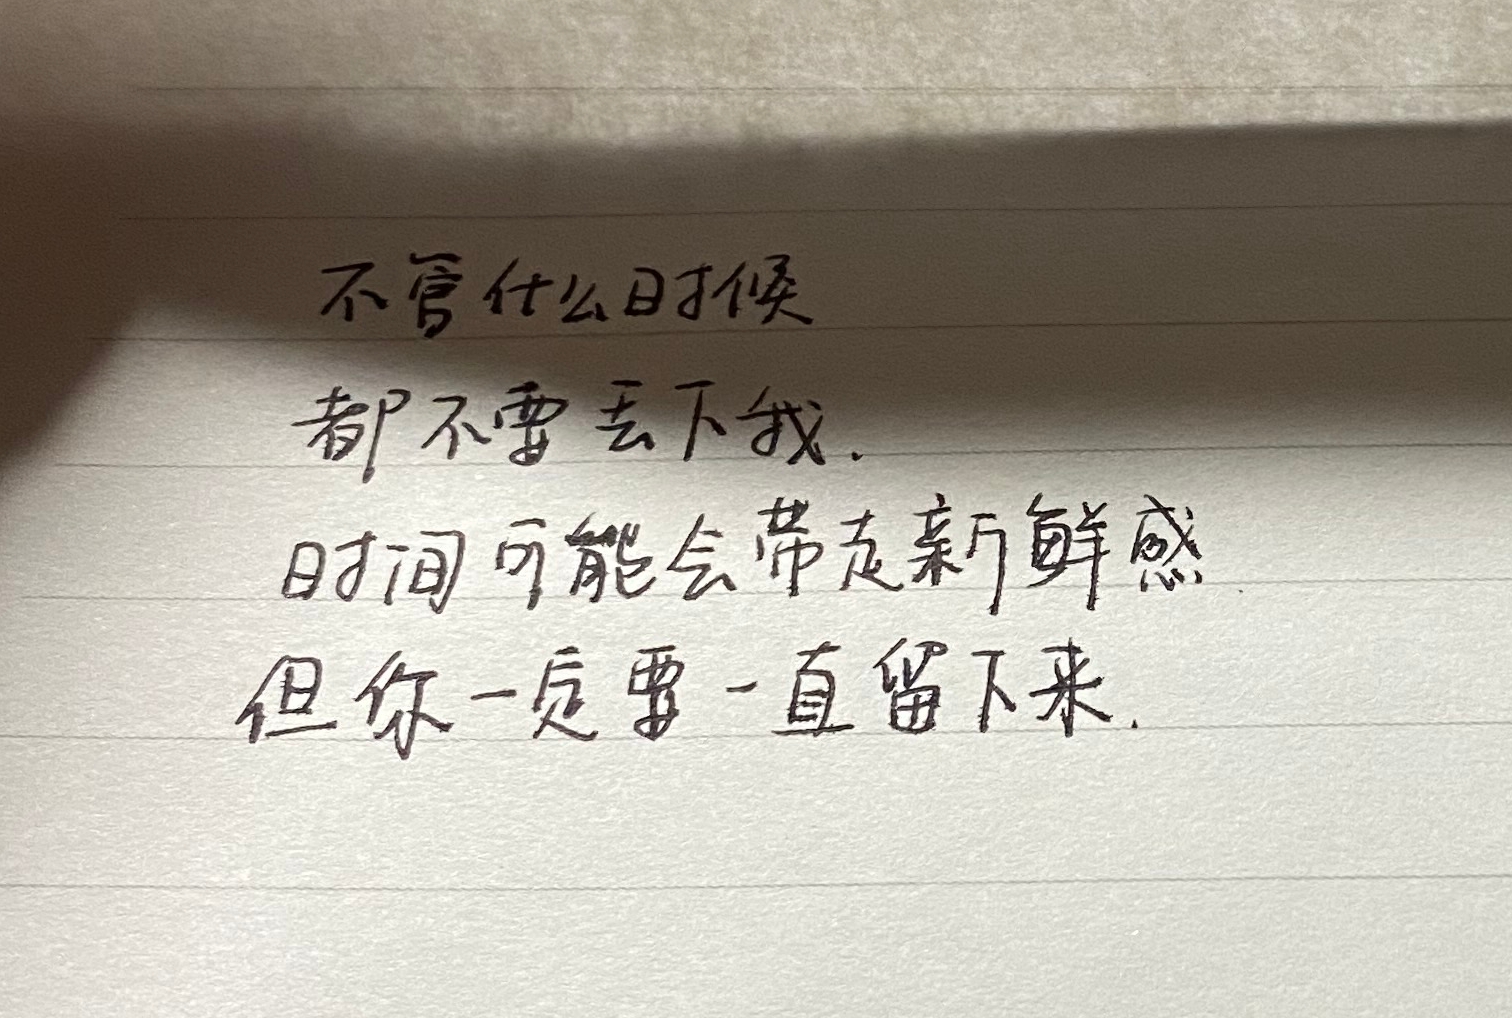 不管什么时候
都不要丢下我.
时间可能会带走新鲜感
但你一定要一直留下来.